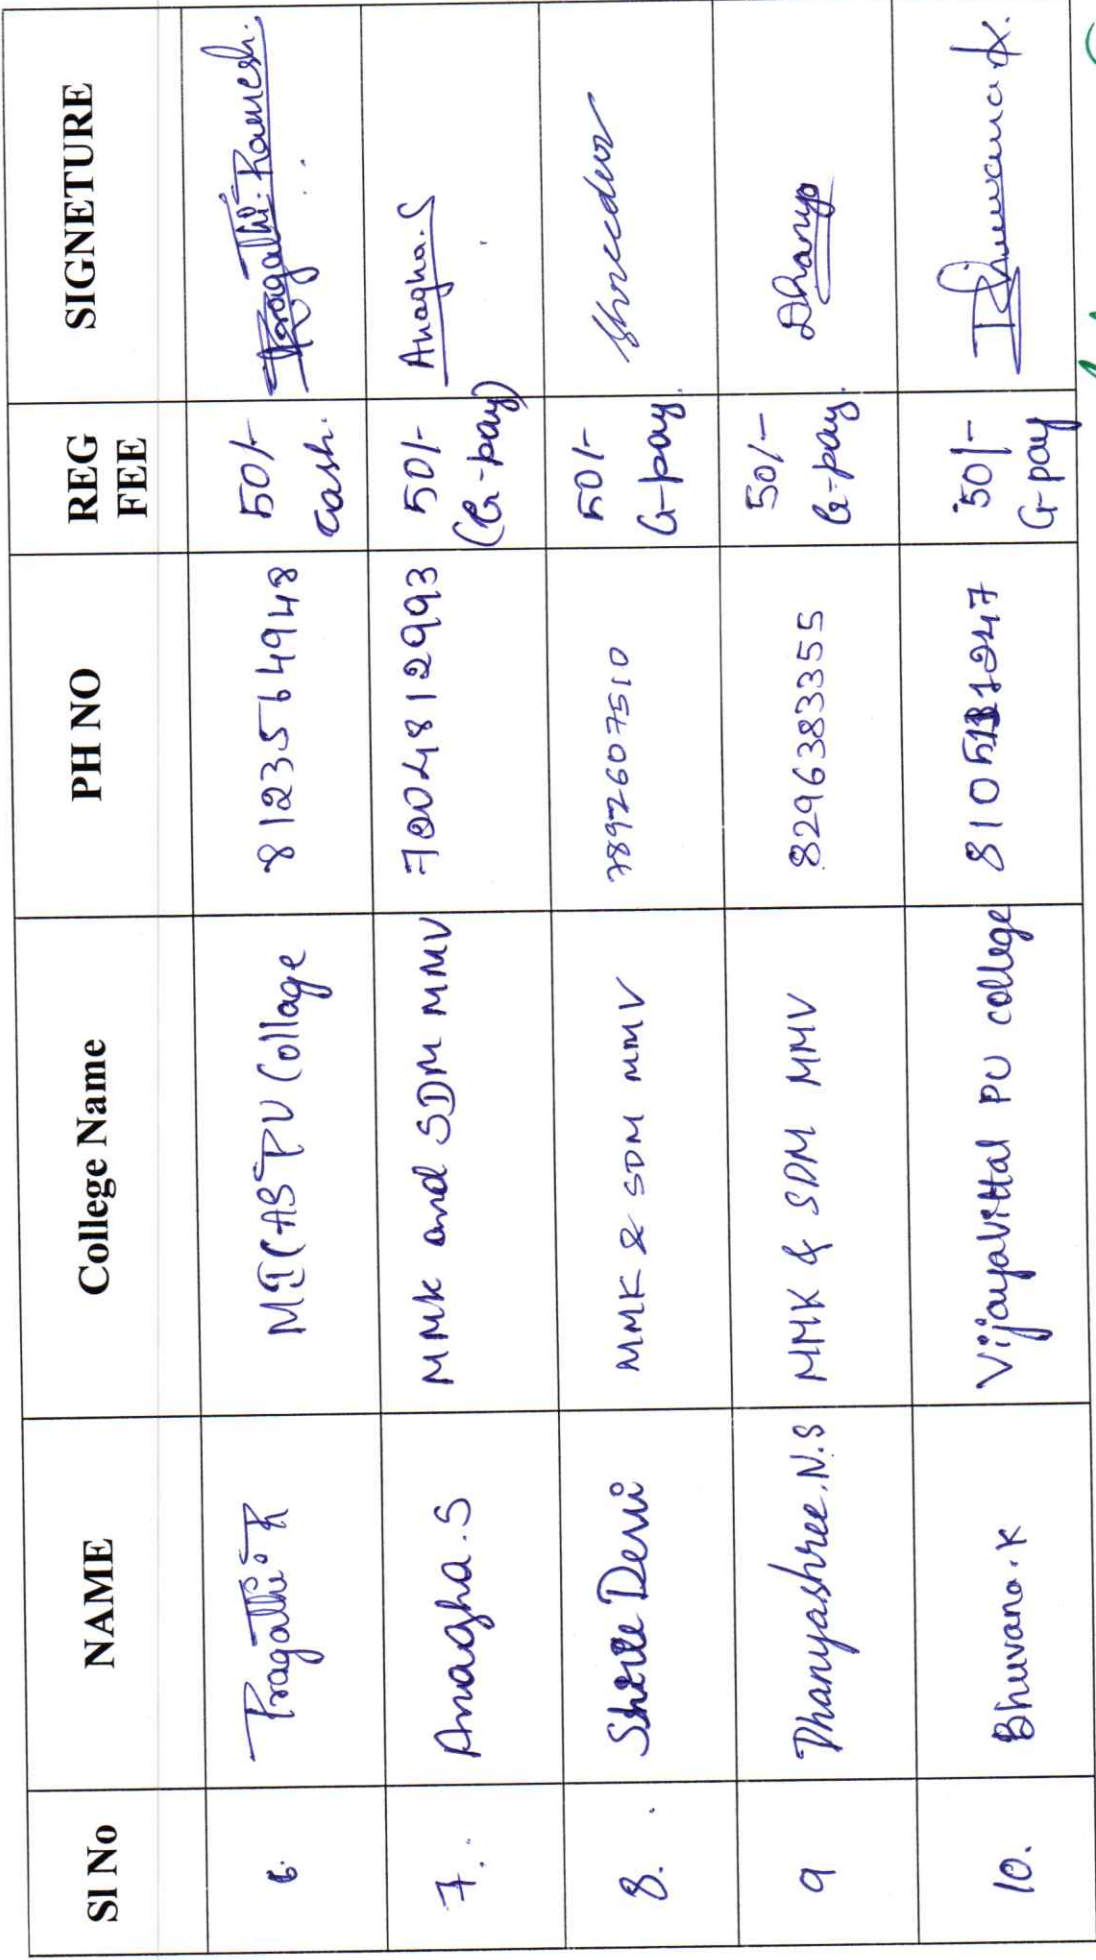 Sl No NAME College Name PH NO REG FEE SIGNETURE
6. Pragathi.R MICAS PU Collage 8123564948 50/- cash. Pragathi.Ramesh.
7. Anagha.S MMK and SDM MMV 7004812993 50/- (G-pay) Anagha.S
8. Shree Devi MMK & SDM MMV 7892607510 50/- G-pay. Shreedevi
9 Dhanyashree.N.S MMK & SDM MMV 8296383355 50/- G-pay. Dhanya
10. Bhuvana.K Vijayavittal PU college 50/- G-pay Bhuvana.K.